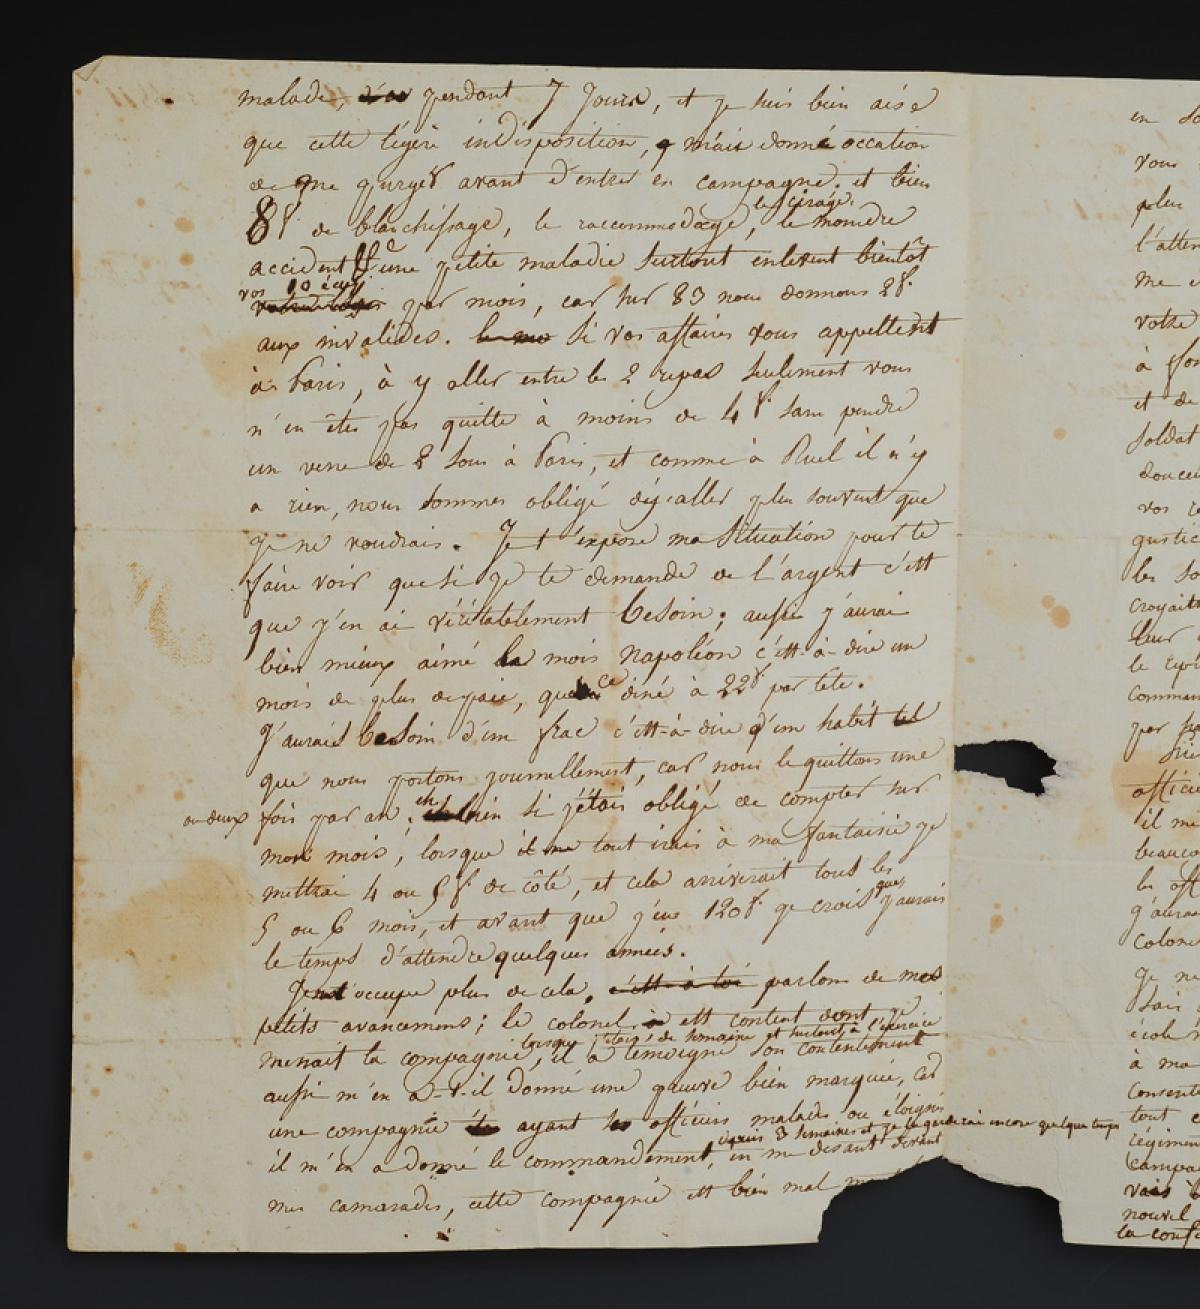 malade, pendant 7 Jours, et je suis bien aise
que cette légère indisposition, m'ait donné occation
de me purger avant d'entrer en campagne. et bien
8f. de blanchissage, le raccommodage, le cirage, le moindre
accident une petite maladie surtout enlevent bientôt
vos 10 écus par mois, car sur 83 nous donnons 2f.
aux invalides. si vos affaires vous appellent
à Paris, à y aller entre les 2 repas seulement vous
n'en êtes pas quitte à moins de 4f. sans prendre
un verre de 2 sous à Paris, et comme à Ruel il n'y
a rien, nous sommes obligé d'y aller plus souvent que
je ne voudrais. Je t'expose ma situation pour te
faire voir que si je te demande de l'argent c'est
que j'en ai véritablement besoin; aussi j'aurai
bien mieux aimé le mois napoléon c'est-à-dire un
mois de plus de paie, que ce diné à 22f par tête.
J'aurais besoin d'un frac c'est-à-dire d'un habit tel
que nous portons journellement, car nous le quittons une
ou deux fois par an; eh bien si j'étais obligé de compter sur
mon mois, lorsque tout irais à ma fantaisie je
mettrai 4 ou 5f. de côté, et cela arriverait tous les
5 ou 6 mois, et avant que j'eus 120f. je crois que j'aurais
le temps d'attendre quelques années.
Je ne t'occupe plus de cela, c'est à toi parlons de mes
petits avancemens; le colonel est content dont je
menait la compagnie, lorsque j'étois de semaine et surtout à l'exercice
il a témoigné son contentement
aussi m'en a-t-il donné une preuve bien marquée, car
une compagnie ayant les officiers malades ou éloignés
il m'en a donné le commandement, depuis 3 semaines et je la garderai encore quelque temps
en me disant devant
mes camarades, cette compagnie est bien mal
en
vous
plus
l'atten
me
votre
à
et de
soldat
douceu
vos
justic
les so
croyait
leur
le
comman
par
officie
il me
beauco
les off
j'aura
colone
Je ne
sais
école
à ma
consente
tout
régimen
campa
vais
nouvel
la conf